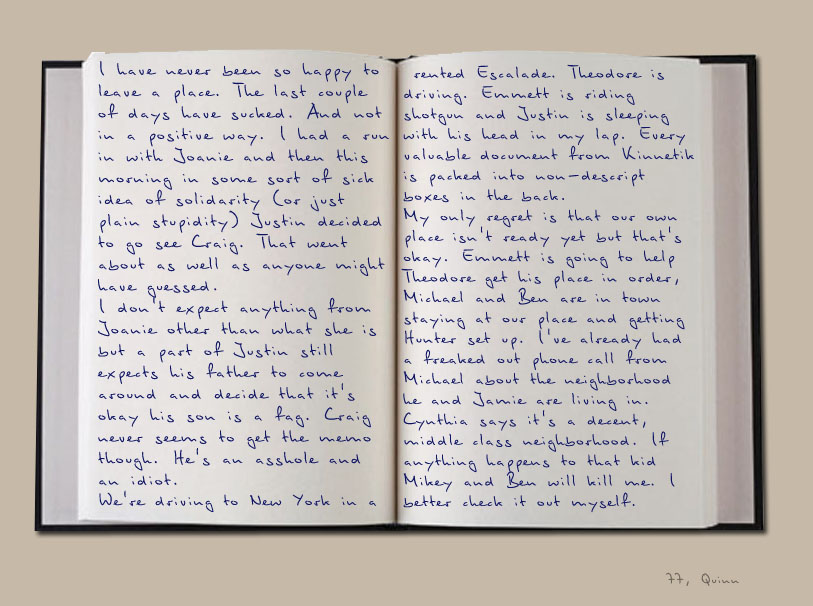 I have never been so happy to
leave a place. The last couple
of days have sucked. And not
in a positive way. I had a run
in with Joanie and then this
morning in some sort of sick
idea of solidarity (or just
plain stupidity) Justin decided
to go see Craig. That went
about as well as anyone might
have guessed.
I don't expect anything from
Joanie other than what she is
but a part of Justin still
expects his father to come
around and decide that it's
okay his son is a fag. Craig
never seems to get the memo
though. He's an asshole and
an idiot.
We're driving to New York in a
rented Escalade. Theodore is
driving. Emmett is riding
shotgun and Justin is sleeping
with his head in my lap. Every
valuable document from Kinnetik
is packed into non-descript
boxes in the back.
My only regret is that our own
place isn't ready yet but that's
okay. Emmett is going to help
Theodore get his place in order,
Michael and Ben are in town
staying at our place and getting
Hunter set up. I've already had
a freaked out phone call from
Michael about the neighborhood
he and Jamie are living in.
Cynthia says it's a decent,
middle class neighborhood. If
anything happens to that kid
Mikey and Ben will kill me. I
better check it out myself.
77, Quinn